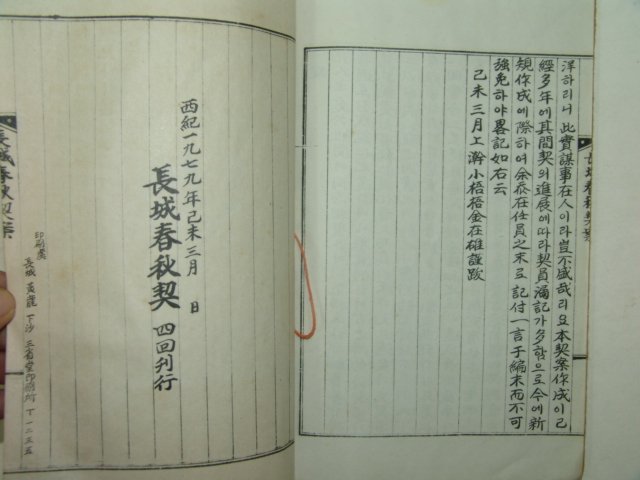 洋하리니 此實謀事在人이라 豈不盛哉리요 本契案作成이 已
經多年에 其間契의 進展에 따라 契員漏記가 多함으로 今에 新
規作成에 際하여 余忝在任員之末로 記付一言于編末而不可
強免하야 畧記如右云
己未三月上澣小梧梧金在雄謹跋
長城春秋契案
西紀一九七九年己未三月 日
長城春秋契 四回刊行
印刷處
長城 黃龍 下沙 三省堂印刷所 下一二三五
長城春秋契案